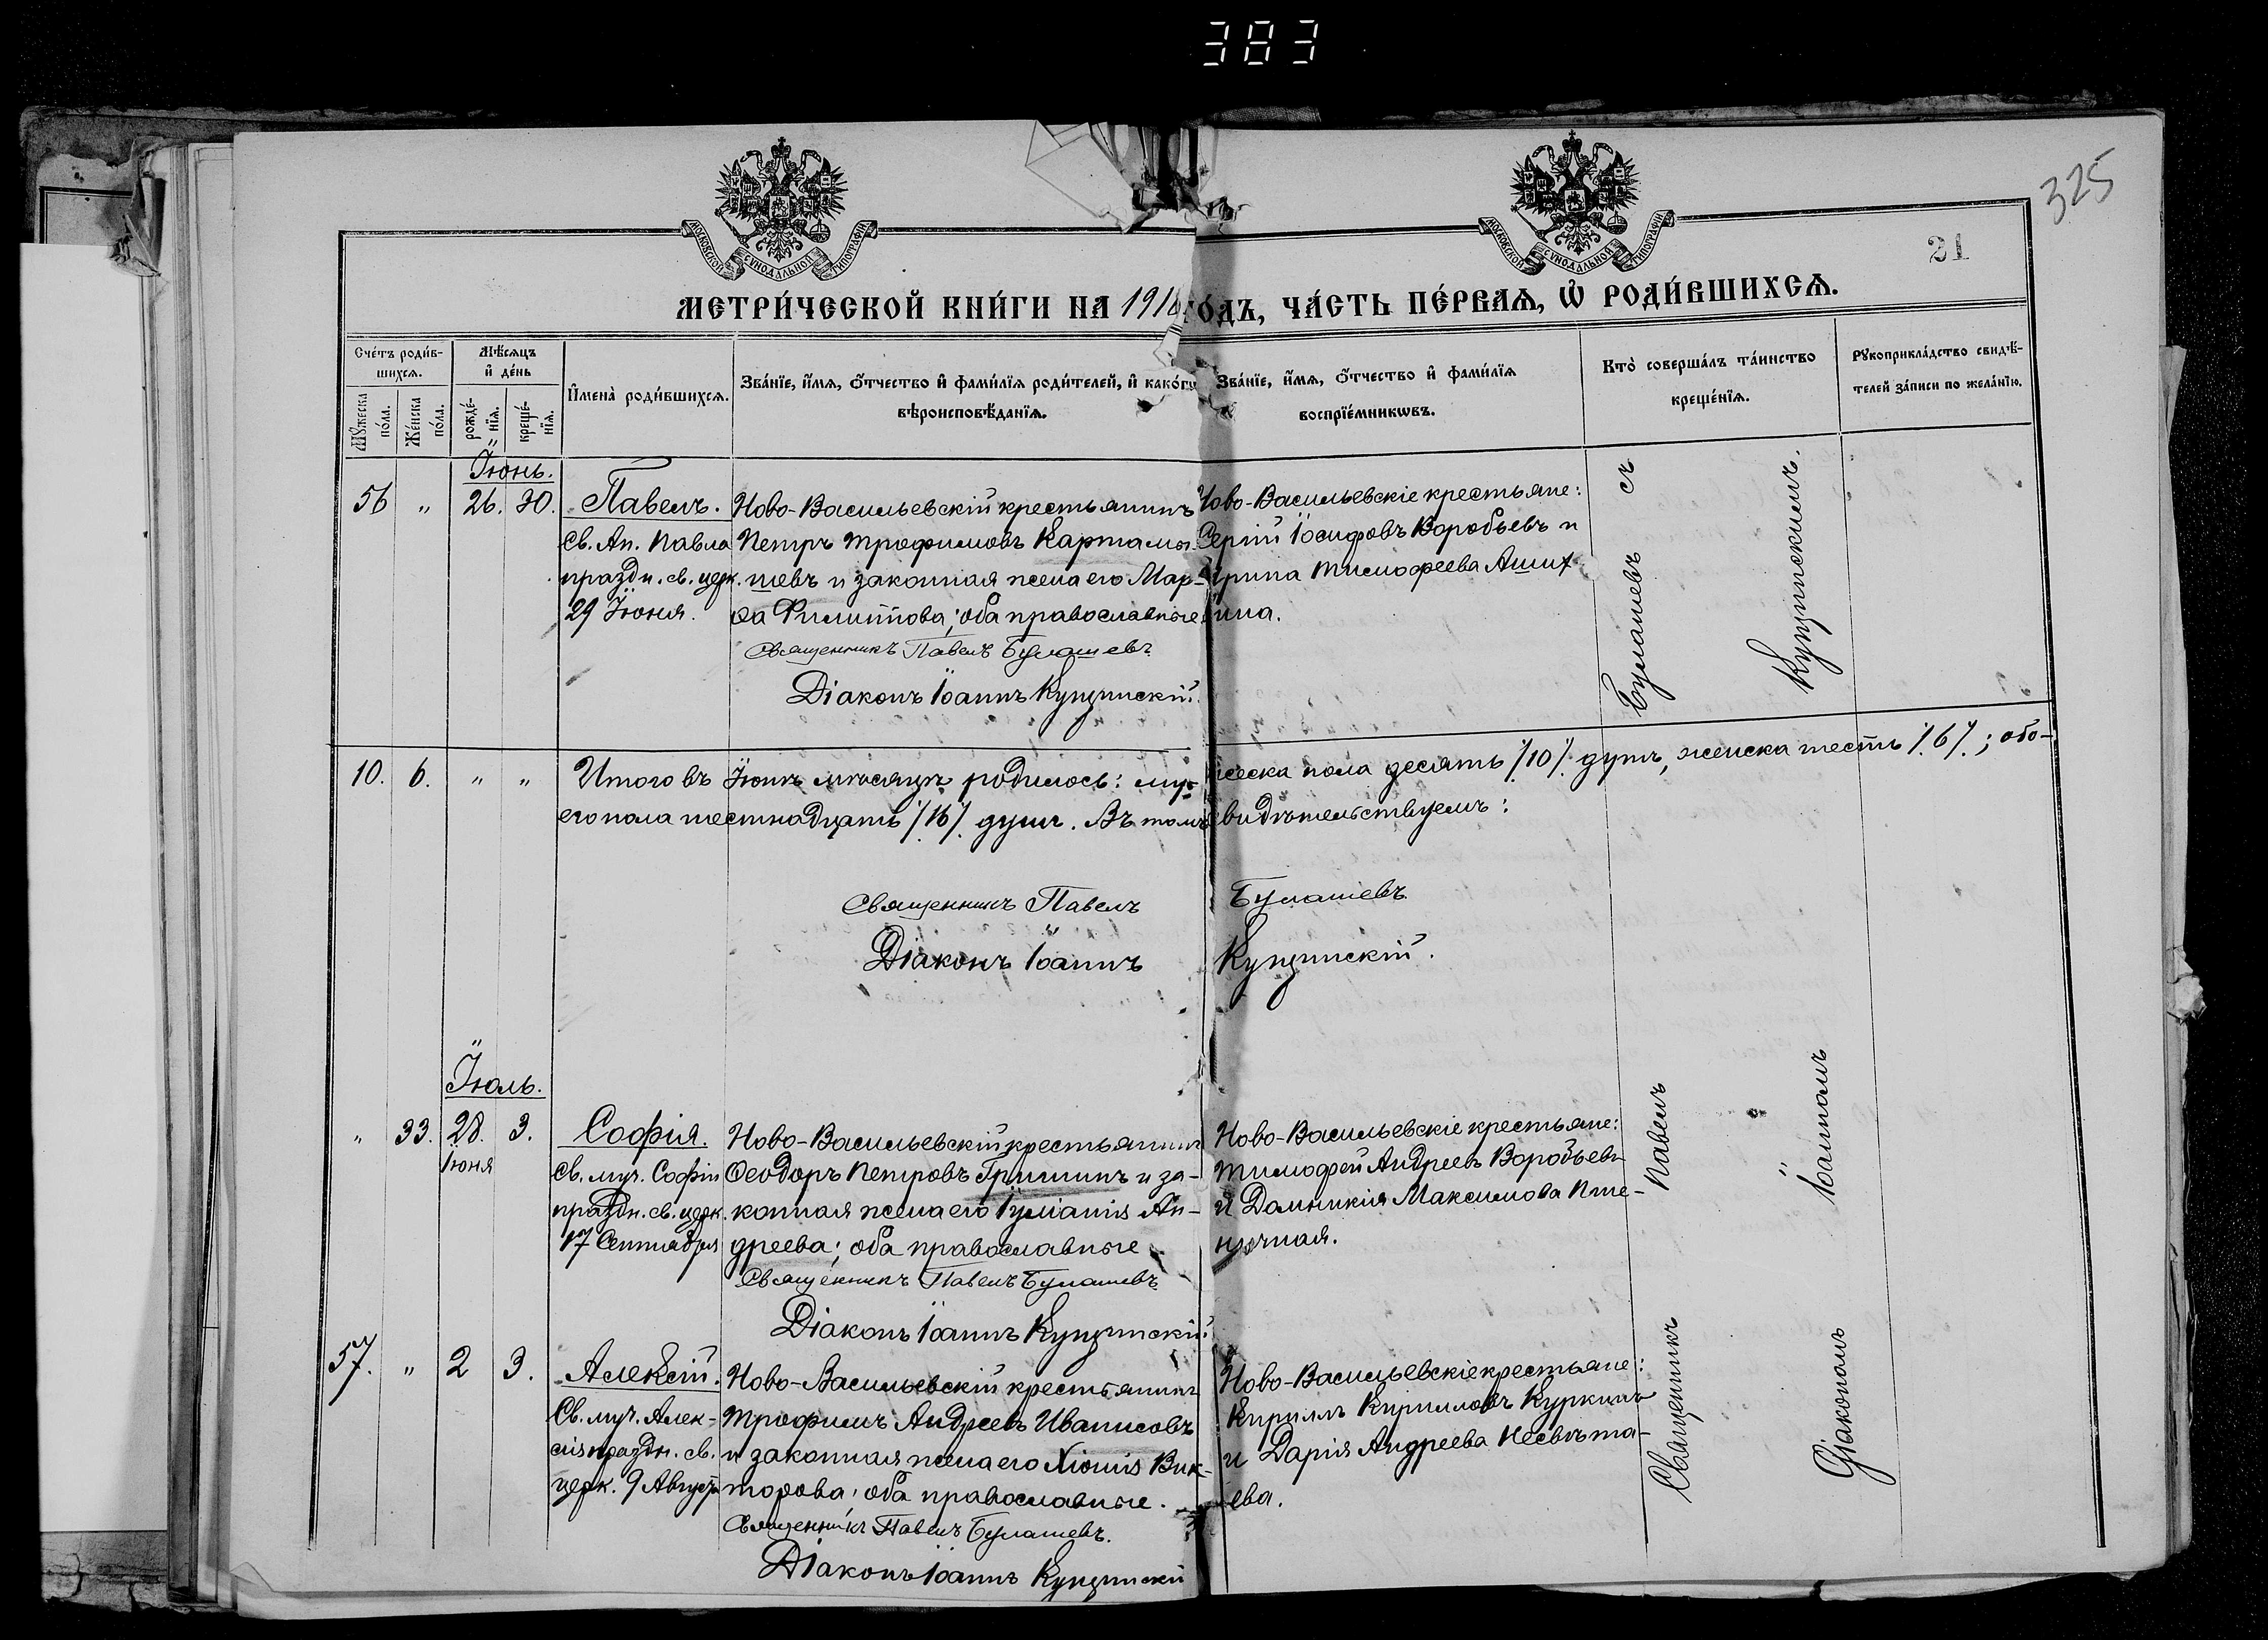 383
325
21
МОСКОВСКОЙ СУНОДАЛЬНОЙ ТИПОГРАФІИ
МОСКОВСКОЙ СУНОДАЛЬНОЙ ТИПОГРАФІИ
МЕТРИ́ЧЕСКОЙ КНИ́ГИ НА 191 ГО́ДЪ, ЧА́СТЬ ПЕ́РВАѦ, Ѽ РОДИ́ВШИХСѦ.
Сче́тъ роди́в-
шихсѧ.
Мꙋ́жеска по́ла.
Же́нска по́ла.
Мѣ́сѧцъ
и҆ де́нь
рожде́-нїѧ.
креще́-нїѧ.
И҆мена̀ роди́вшихсѧ.
Зва́нїе, и҆́мѧ, ѻ҆́тчество и҆ фами́лїѧ роди́телей, и҆ како́гѡ
вѣроисповѣ́данїѧ.
Зва́нїе, и҆́мѧ, ѻ҆́тчество и҆ фами́лїѧ
воспрїе́мникѡвъ.
Кто̀ соверша́лъ та́инство
креще́нїѧ.
Рꙋкоприкла́дство свидѣ́-
телей за́писи по жела́нїю.
Іюнь.
56 " 26. 30.
Павелъ.
Св. Ап. Павла
праздн. св. церк.
29 Іюня.
Ново-Васильевскій крестьянинъ
Петръ Трофимовъ Картамы-
шевъ и законная жена его Мар-
ѳа Филиппова; оба православные
Священникъ Павелъ Булашевъ
Діаконъ Іоаннъ Купчинскій.
Ново-Васильевскіе крестьяне:
Сергій Іосифовъ Воробьевъ и
Ирина Тимофеева Аших-
мина.
10. 6. " "
Итого въ Іюнѣ мѣсяцѣ родилось: му-
жеска пола десять /10/ душъ, женска шесть /6/; обо-
его пола шестнадцать /16/ душъ. Въ томъ
свидѣтельствуемъ:
Священникъ Павелъ Булашевъ
Діаконъ Іоаннъ Купчинскій.
Іюль.
" 33. 28. 3.
Іюня
Софія.
Св. муч. Софіи
праздн. св. церк.
17 Сентября
Ново-Васильевскій крестьянинъ
Ѳеодоръ Петровъ Гришинъ и за-
конная жена его Іуліанія Ан-
дреева; оба православные
Священникъ Павелъ Булашевъ
Діаконъ Іоаннъ Купчинскій.
Ново-Васильевскіе крестьяне:
Тимофей Андреевъ Воробьевъ
и Домникія Максимова Пше-
ничная.
57. " 2 3.
Алексій.
Св. муч. Алек-
сія праздн. св.
церк. 9 Августа
Ново-Васильевскій крестьянинъ
Трофимъ Андреевъ Иванисовъ
и законная жена его Хіонія Вик-
торова; оба православные.
Священникъ Павелъ Булашевъ.
Діаконъ Іоаннъ Купчинскій
Ново-Васильевскіе крестьяне:
Кириллъ Кирилловъ Куркинъ
и Дарія Андреева Несвѣта-
ева.
Священникъ Павелъ Булашевъ съ
Діакономъ Іоанномъ Купчинскимъ.